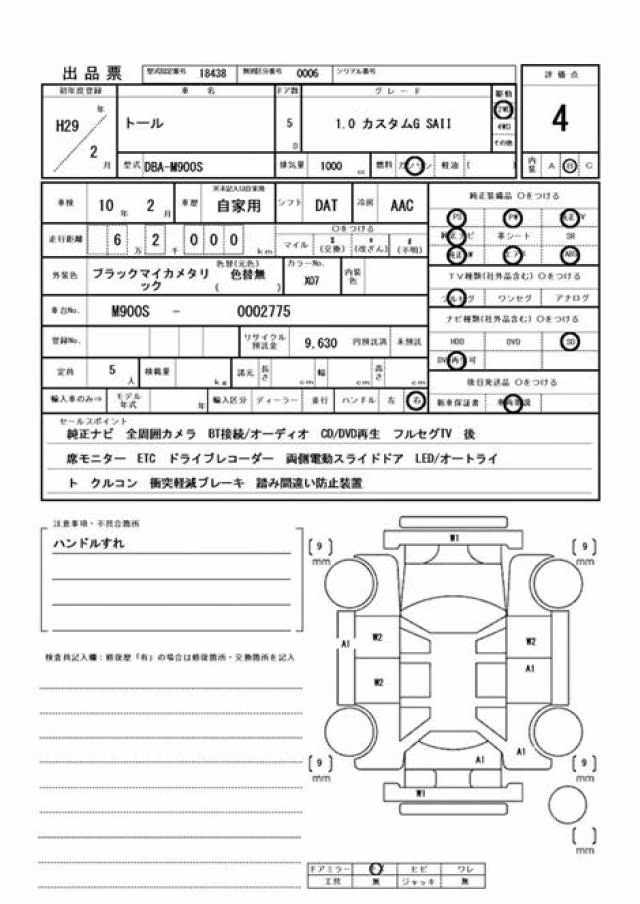 出品票 型式指定番号 18438 類別区分番号 0006 シリアル番号
初年度登録 車名 ドア数 グレード 駆動 評価点
H29 年 2 月 トール 5 D 1.0 カスタムG SAII 2WD 4WD その他 4
型式 DBA-M900S 排気量 1000 cc 燃料 ガソリン 軽油 ( ) 内装 A B C
車検 10 年 2 月 車歴 ※未記入は自家用 自家用 シフト DAT 冷房 AAC
純正装備品 〇をつける
PS PW 純正TV
純正ナビ 革シート SR
純正AW エアB ABS
走行距離 6 万 2 千 0 0 0 km 〇をつける マイル $ (交換) * (改ざん) # (不明)
外装色 ブラックマイカメタリック 色替(元色) 色替無 ( ) カラーNo. X07 内装色
TV種類(社外品含む) 〇をつける
フルセグ ワンセグ アナログ
車台No. M900S - 0002775
ナビ種類(社外品含む) 〇をつける
HDD DVD SD
DVD再生可
登録No. リサイクル預託金 9,630 円預託済 未預託
定員 5 人 積載量 kg 諸元 長さ cm 幅 cm 高さ cm
後日発送品 〇をつける
新車保証書
輸入車のみ⇒ モデル年式 年 輸入区分 ディーラー 並行 ハンドル 左 右
セールスポイント
純正ナビ 全周囲カメラ BT接続/オーディオ CD/DVD再生 フルセグTV 後
席モニター ETC ドライブレコーダー 両側電動スライドドア LED/オートライ
ト クルコン 衝突軽減ブレーキ 踏み間違い防止装置
注意事項・不具合箇所
ハンドルすれ
検査員記入欄:修復歴「有」の場合は修復箇所・交換箇所を記入
W1
[ 9 ] mm [ 9 ] mm
A1 W2 W2
W2 A1
A1 A1
[ 9 ] mm [ 9 ] mm
W1
[ ] mm
ドアミラー キズ ヒビ ワレ
工具 無 ジャッキ 無